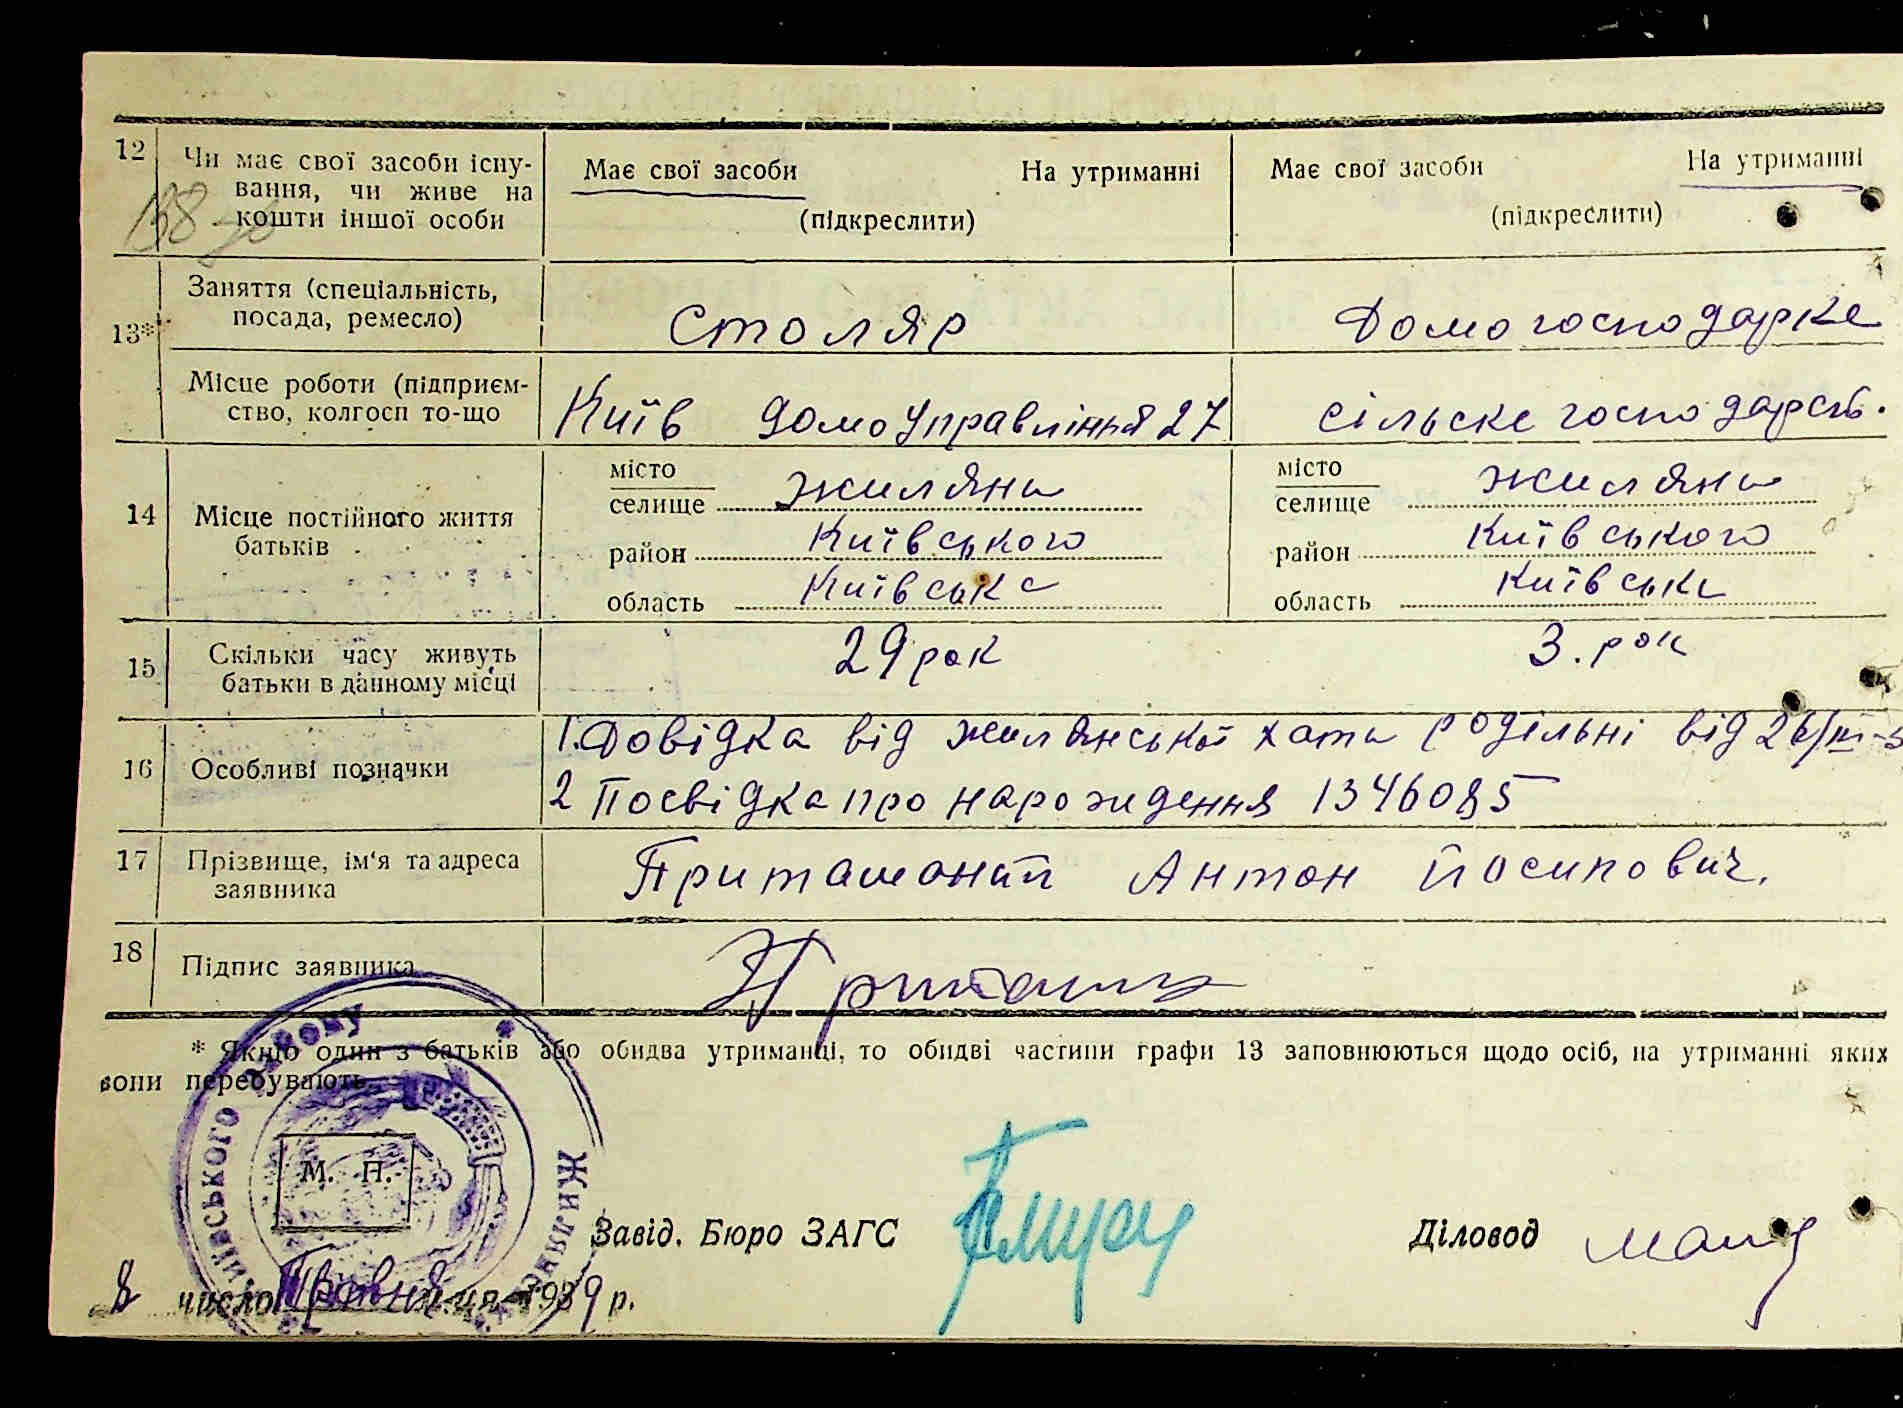 12 Чи має свої засоби існу- Має свої засоби На утриманні Має свої засоби На утриманні
вання, чи живе на
кошти іншої особи (підкреслити) (підкреслити)
Заняття (спеціальність, Столяр Домогосподарке
13* посада, ремесло)
Місце роботи (підприєм- Київ Домоуправління 27 сільске господарств.
ство, колгосп то-що
місто Жиляни місто Жиляни
селище селище
14 Місце постійного життя район Київського район Київського
батьків область Київське область Київське
15 Скільки часу живуть 29 рок 3. рок
батьки в данному місці
1. Довідка від жилянської хати родільні від 26/III-
16 Особливі позначки
2 Посвідка про нарождення 1346085
17 Прізвище, ім'я та адреса Приташоний Антон Йосипович.
заявника
18 Підпис заявника
* Якщо один з батьків або обидва утриманці, то обидві частини графи 13 заповнюються щодо осіб, на утриманні яких
вони перебувають.
М. П.
Завід. Бюро ЗАГС Діловод
8 число Травня м-ця 1939 р.